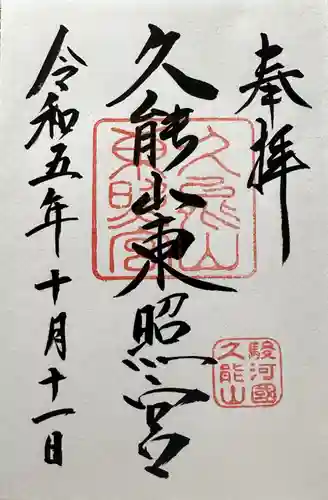 奉拝
久能山東照宮
令和五年十月十一日
久能山
東照宮
駿河國
久能山